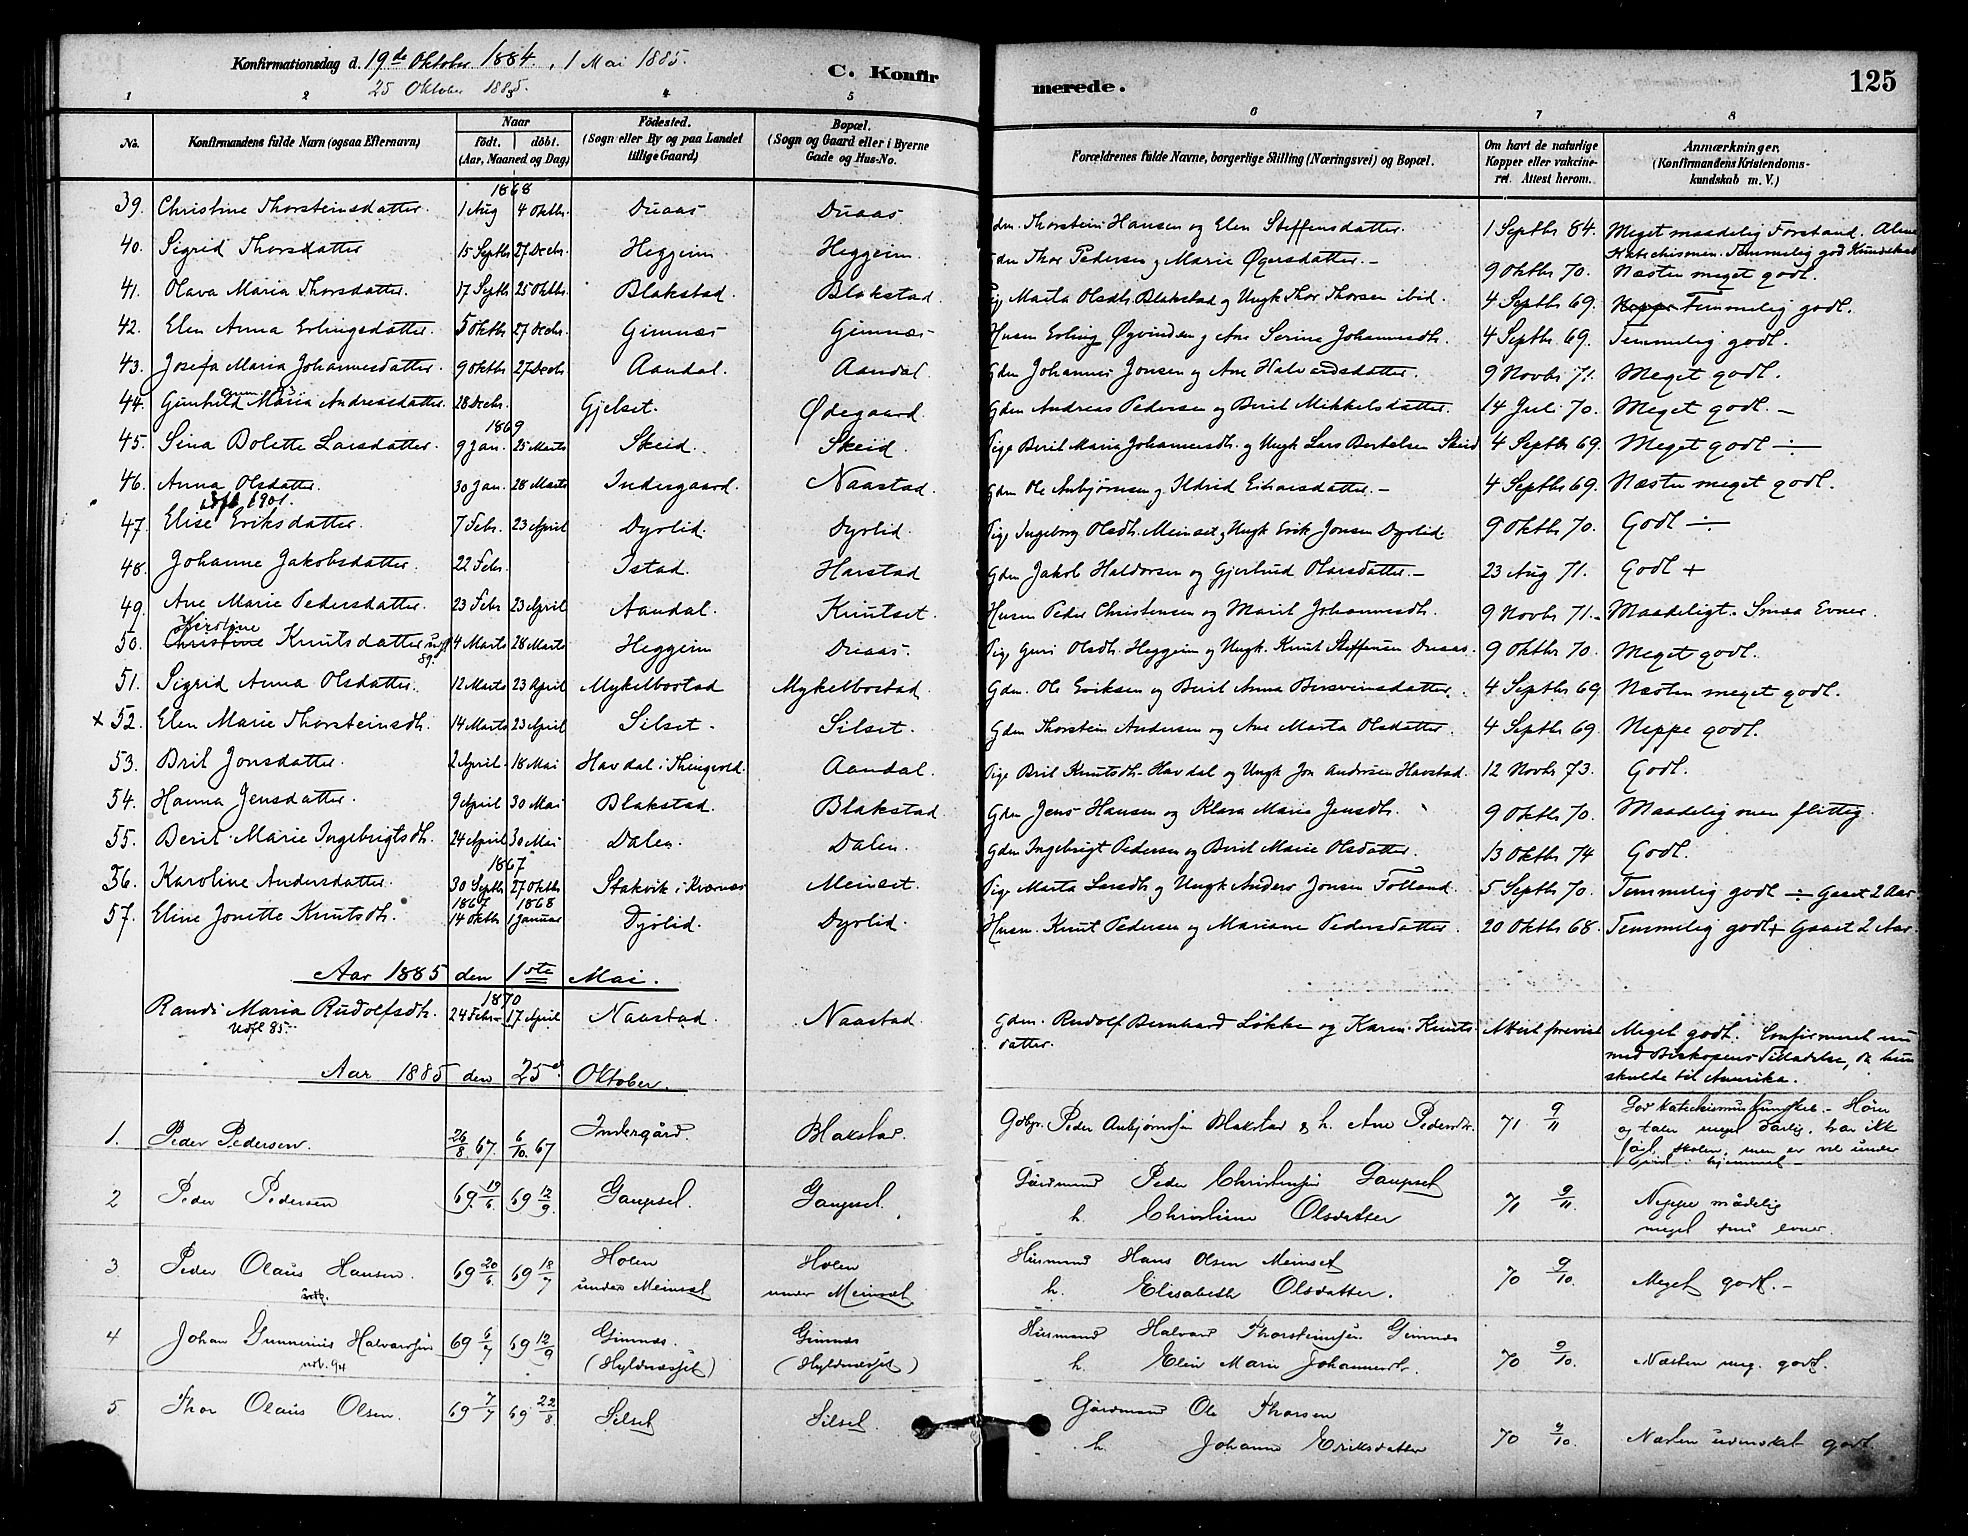 Konfirmationsdag d. 19de Oktober 1884, 1 Mai 1885.
25 Oktober 1885.
C. Konfirmerede.
125
1 2 4 5 6 7 8
No. Konfirmandens fulde Navn (ogsaa Efternavn) Naar födt. döbt. (Aar, Maaned og Dag) Födested. (Sogn eller By og paa Landet tillige Gaard) Bopæl. (Sogn og Gaard eller i Byerne Gade og Hus-No. Forældrenes fulde Navne, borgerlige Stilling (Næringsvei) og Bopæl. Om havt de naturlige Kopper eller vakcineret. Attest herom. Anmærkninger, (Konfirmandens Kristendomskundskab m. V.)
1868
39. Christine Thorsteinsdatter. 1 Aug 4 Oktbr. Duaas Duaas Gdm. Thorstein Hansen og Elen Steffensdatter. 1 Septbr 84. Meget maadelig Forstand. Alene Katechismen. Temmelig god Kundskab
40. Sigrid Thorsdatter 15 Septbr 27 Decbr. Heggeim. Heggeim. Gdm Thor Pedersen og Marie 9 Oktbr 70. Næsten meget godt.
41. Olava Maria Thorsdatter. 17 Septbr 25 Oktbr. Blakstad. Blakstad. Pige Marta Olsdtr. Blakstad og Ungk Thor Thorsen ibid. 4 Septbr 69. Neppe Temmelig godt.
42. Elen Anna Erlingsdatter. 5 Oktbr 27 Decbr. Gimnæs Gimnæs Husm Erling Øyvindsen og Ane Serine Johannesdtr. 4 Septbr 69. Temmelig godt.
43. Josefa Maria Johannesdatter. 9 Oktbr 27 Decbr. Aandal. Aandal Gdm Johannes Jonsen og Ane Halvardsdatter. 9 Novbr 71. Meget godt.
44. Gunhild Maria Andreasdatter. 28 Decbr. Gjelset. Ødegaard Gdm Andreas Pedersen og Beril Mikkelsdatter. 14 Juli 70. Meget godt. —
1869
45. Sina Bolette Larsdatter. 9 Jan. 25 Marts Skeid. Skeid. Pige Beril Maria Johannesdtr. og Ungk Lars Bertelsen Skeid 4 Septbr 69. Meget godt ÷
46. Anna Olsdatter. 30 Jan. 28 Marts Indergaard. Naastad. Gdm Ole Anbjørnsen og Ildrid Einarsdatter. — 4 Septbr 69. Næsten meget godt.
1901.
47. Elise Eriksdatter. 7 Febr. 23 April Dyrlid. Dyrlid. Pige Ingeborg Olsdtr. Meinset og Ungk Erik Jonsen Dyrlid. 9 Oktbr 70. Godt ÷
48. Johanne Jakobsdatter. 22 Febr. Istad. Harstad Gdm Jakob Haldorsen og Gjertrud Olsdatter. — 23 Aug 71. Godt +
49. Ane Marie Pedersdatter. 23 Febr 23 April Aandal. Knutset. Husm Peder Christensen og Marit Johannesdtr. 9 Novbr 71. Maadeligt. Smaa Evner
Kirstine
50. Christine Knutsdatter 89. 4 Marts 28 Marts Heggeim Duaas. Pige Guri Olsdtr. Heggeim og Ungk. Knut Steffensen Duaas. 9 Oktbr 70. Meget godt.
51. Sigrid Anna Olsdatter. 12 Marts 23 April Mykelbostad Mykelbostad. Gdm. Ole Eriksen og Beril Anna Bersveinsdatter. 4 Septbr 69 Næsten meget godt.
× 52. Elen Marie Thorsteinsdtr. 14 Marts 23 April Silset. Silset. Gdm Thorstein Andersen og Ane Marta Olsdatter 4 Septbr 69. Neppe godt.
53. Bril Jonsdatter. 2 April. 18 Mai Havdal i Thingvold. Aandal. Pige Bril Knutsdtr. Havdal og Ungk Jon Andersen Havstad. 12 Novbr 73. Godt.
54. Hanna Jensdatter. 9 April 30 Mai Blakstad. Blakstad. Gdm Jens Hansen og Klara Marie Jensdtr. 9 Oktbr 70. Maadelig men flittig.
55. Beril Marie Ingebrigtsdtr. 24 April 30 Mai Dalen. Dalen. Gdm Ingebrigt Pedersen og Beril Marie Olsdatter. 13 Oktbr 74 Godt.
1867
56. Karoline Andersdatter. 30 Septbr 27 Oktbr Stakvik i Kværnæs Meinset. Pige Marta Larsdtr og Ungk Anders Jonsen Folland. 5 Septbr 70. Temmelig godt ÷ Gaaet 2 Aar
1867 1868
57. Eline Jonette Knutsdtr. 14 Oktbr 1 Januar Dyrlid. Dyrlid. Husm. Knut Pedersen og Mariane Pedersdatter. 20 Oktbr 68. Temmelig godt + Gaaet 2 Aar.
Aar 1885 den 1ste Mai.
1870
Randi Maria Rudolfsdtr. 24 Febr. 17 April Naastad. Naastad. Gdm. Rudolf Bernhard Løkke og Karen Knutsdatter. Attest forevist Meget godt. Confirmeret nu med Biskopens Tilladelse, da hun skulde til Amerika.
Udfl 85.
Aar 1885 den 25d Oktober.
1. Peder Pedersen. 26/8 67. 6/10 67 Indergård. Blakstad. Gdbr. Peder Anbjørnsen Blakstad & h. Ane Pedersdtr. 71 9/11 God Katechismuskundskab. — Hører og taler meget darlig, har ikke skolen, men er vel under i hjemmet —
2 Peder Pedersen 69. 19/6. 69 12/9. Gaupset. Gaupset. Gårdmand Peder Christensen Gaupset
h. Christiane Olsdatter 71 9/11. Neppe mådelig meget små evner.
3 Peder Olaus Hansen. 69 20/6. 69 18/7 Holen under Meinset Holen under Meinset Husmand Hans Olsen Meinset
h. Elisabeth Olsdatter. 70 9/10. Meget godt. —
4 Johan Gunnerius Halvardsen 69 6/7 69 12/9 Gimnæs. (Hyldnæsset) Gimnæs (Hyldnæsset) Husmand Halvard Thorsteinsen Gimnæs
h. Elen Marie Johannesdtr. 70 9/10. Næsten meg. godt.
94
5 Thor Olaus Olsen. 69 7/7 69 22/8 Silset Silset. Gårdmand Ole Thorsen
h. Johanne Eriksdatter 70 9/10. Næsten udmerket godt.